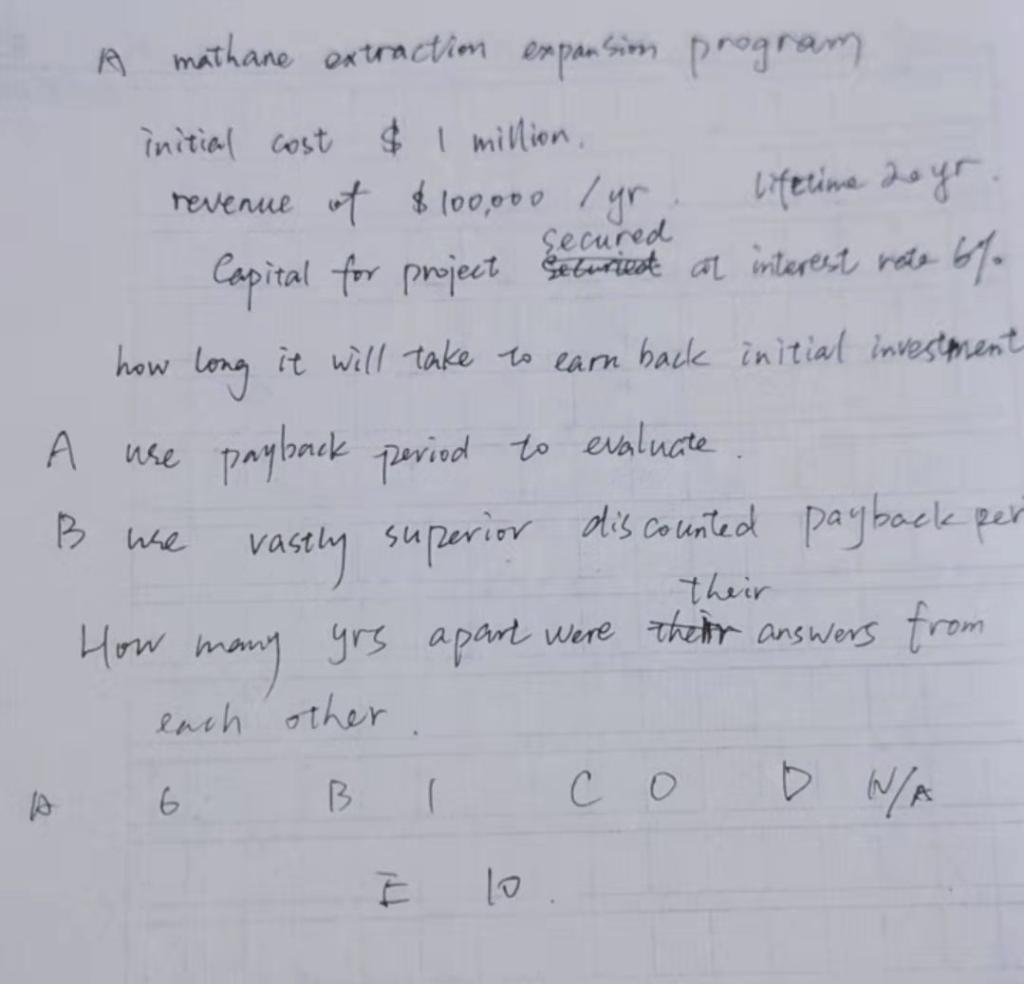 A mathane extraction expansion program
initial cost $ 1 million.
revenue of $100,000 /yr. lifetime 20 yr.
secured
Capital for project securied at interest rate 6%
how long it will take to earn back initial investment
A use payback period to evaluate.
B use vastly superior discounted payback per
their
How many yrs apart were their answers from
each other.
A 6 B 1 C 0 D N/A
E 10.